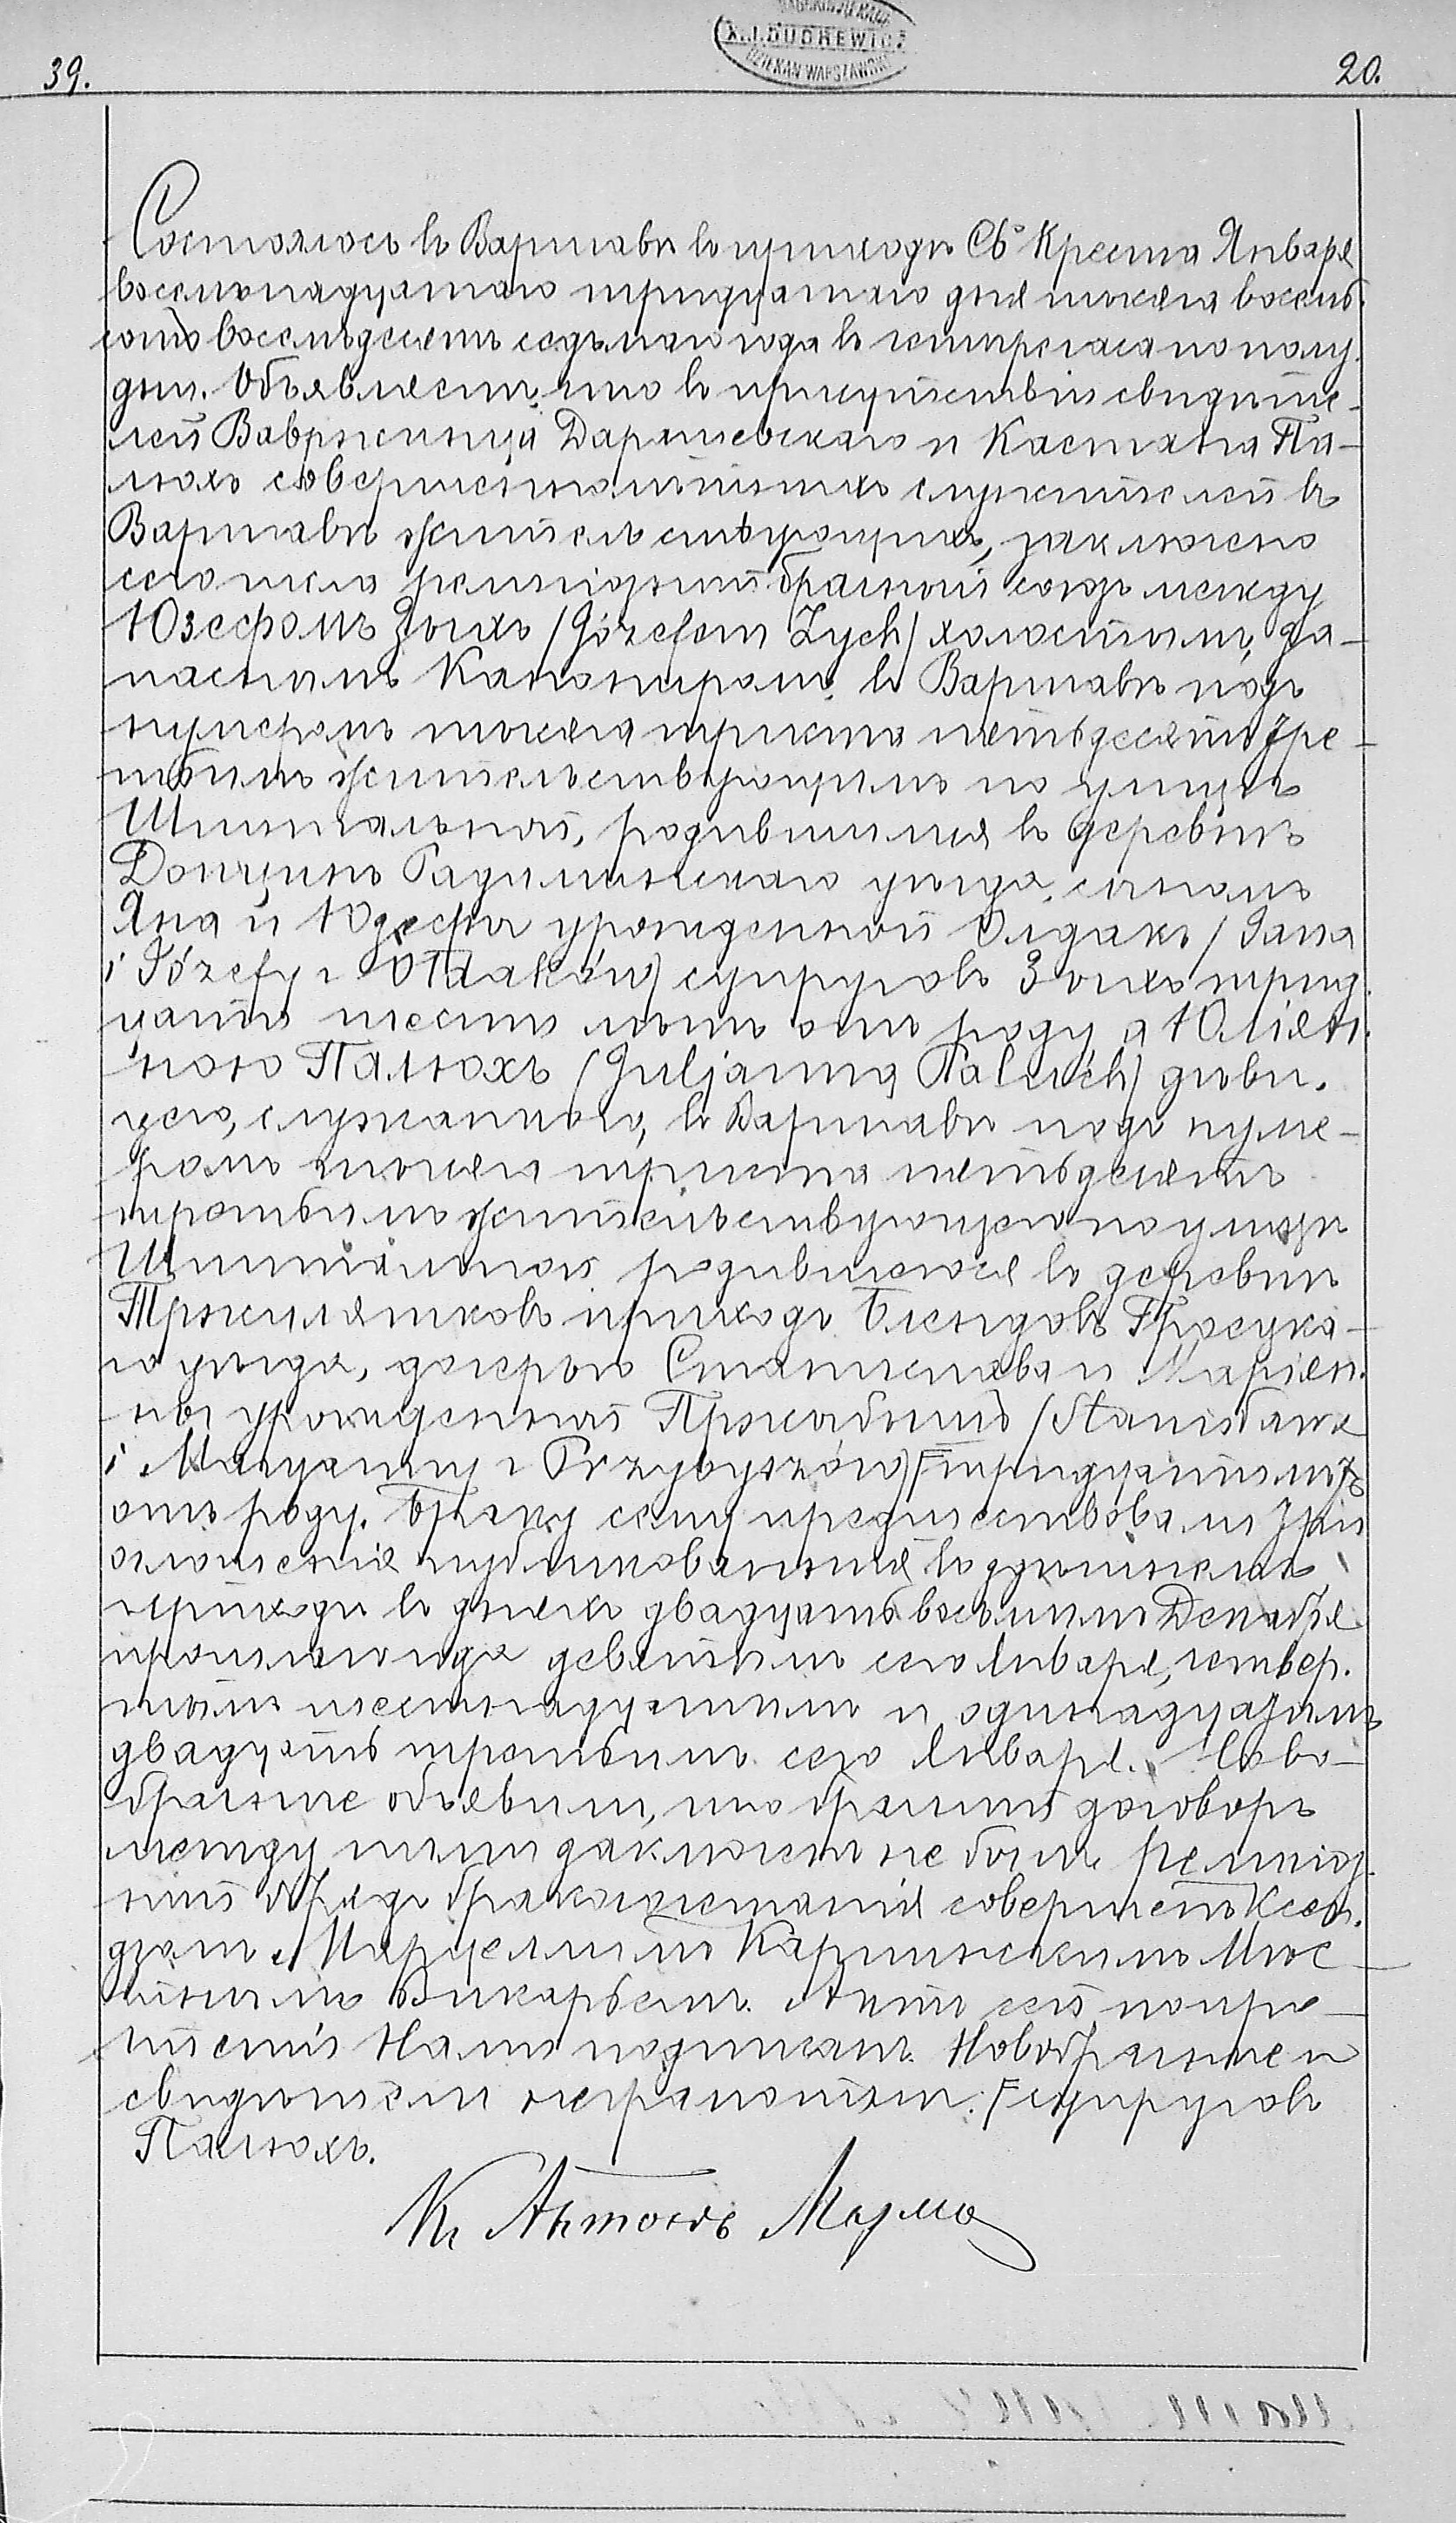 X. J. DUDREWICZ
DZIEKAN WARSZAWSKI
39.
20.
Состоялось въ Варшавѣ въ приходѣ Св Креста Января
восемнадцатаго тридцатаго дня тысяча восемь
сотъ восемьдесятъ седьмаго года въ четыре часа по полу
дни. Объявляемъ, что въ присутствіи свидѣте-
лей Вавржинца Дарашевскаго и Каетана Па-
люхъ совершеннолѣтнихъ служителей въ
Варшавѣ жительствующихъ, заключено
сего числа религіозный брачный союзъ между
Юзефомъ Зыхъ /Józefem Zych/ холостымъ, за-
паснымъ Канониромъ въ Варшавѣ подъ
нумеромъ тысяча триста пятьдесятъ тре-
тьимъ жительствующимъ по улицѣ
Шпитальной, родившимся въ деревнѣ
Радиминскаго уѣзда, сыномъ
Яна и Юзефы урожденной Олдакъ /Jana
i Józefy z Ołdaków/ супруговъ Зыхъ трид
цать шесть лѣтъ отъ роду а Юліян.
ною Палюхъ /Juljanną Paluch/ дѣви.
цею, служанкою, въ Варшавѣ подъ нуме-
ромъ тысяча триста пятьдесятъ
третьимъ жительствующею по улицѣ
Шпитальной родившеюся въ деревнѣ
приходѣ Блендовъ Гроецка-
го уѣзда, дочерью Станислава и Маріян.
ны урожденной Пржибышъ /Stanisława
i Maryanny z Przybyszów/ F тридцать лѣтъ
отъ роду. Браку сему предшествовали три
оглашенія публикованныя въ здѣшнемъ
приходѣ въ дняхъ двадцать восьмымъ Декабря
прошлаго года девятымъ сего Января, четвер.
тымъ шестнадцатымъ и одинадцатымъ
двадцать третьимъ сего Января. Ново-
брачные объявили, что брачный договоръ
между ними заключенъ не былъ. Религіоз
ный обрядъ бракосочетанія совершенъ Ксен.
дзомъ Марцелиимъ Карпинскимъ Мѣс
тнымъ Викарьемъ. Актъ сей по про-
чтеніи Нами подписанъ. Новобрачные и
свидѣтели неграмотны. F супруговъ
Палюхъ.
Кс Антонъ